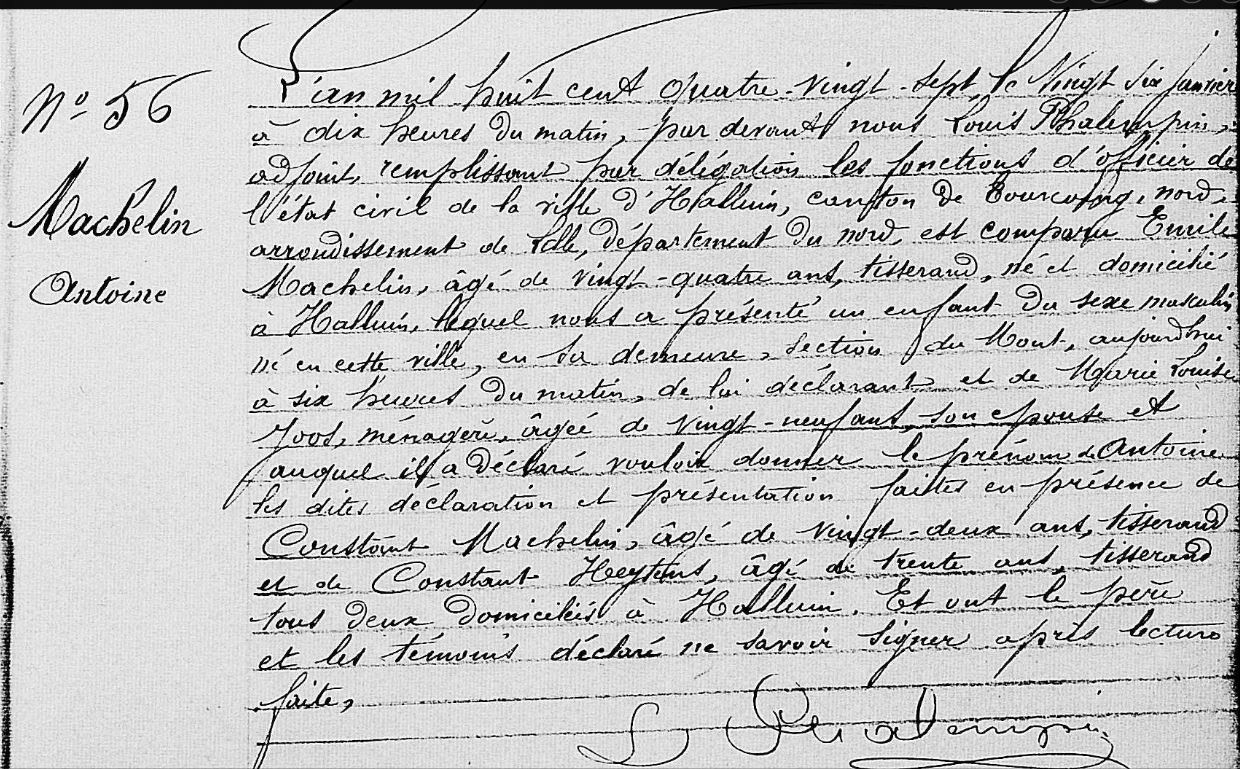 N° 56
Machelin
Antoine
L'an mil huit cent quatre-vingt-sept, le vingt six janvier
à dix heures du matin, par devant nous Louis Phalempin,
adjoint, remplissant par délégation les fonctions d'officier de
l'état civil de la ville d'Halluin, canton de Tourcoing, nord,
arrondissement de Lille, département du nord, est comparu Emile
Machelin, âgé de vingt-quatre ans, tisserand, né et domicilié
à Halluin, lequel nous a présenté un enfant du sexe masculin
né en cette ville, en sa demeure, section du Mont, aujourd'hui
à six heures du matin, de lui déclarant et de Marie Louise
Joos, ménagère, âgée de vingt-neuf ans, son épouse et
auquel il a déclaré vouloir donner le prénom de Antoine
les dites déclaration et présentation faites en présence de
Constant Machelin, âgé de vingt-deux ans, tisserand
et de Constant Heytens, âgé de trente ans, tisserand
tous deux domiciliés à Halluin. Et ont le père
et les témoins déclaré ne savoir signer après lecture
faite,
L Phalempin